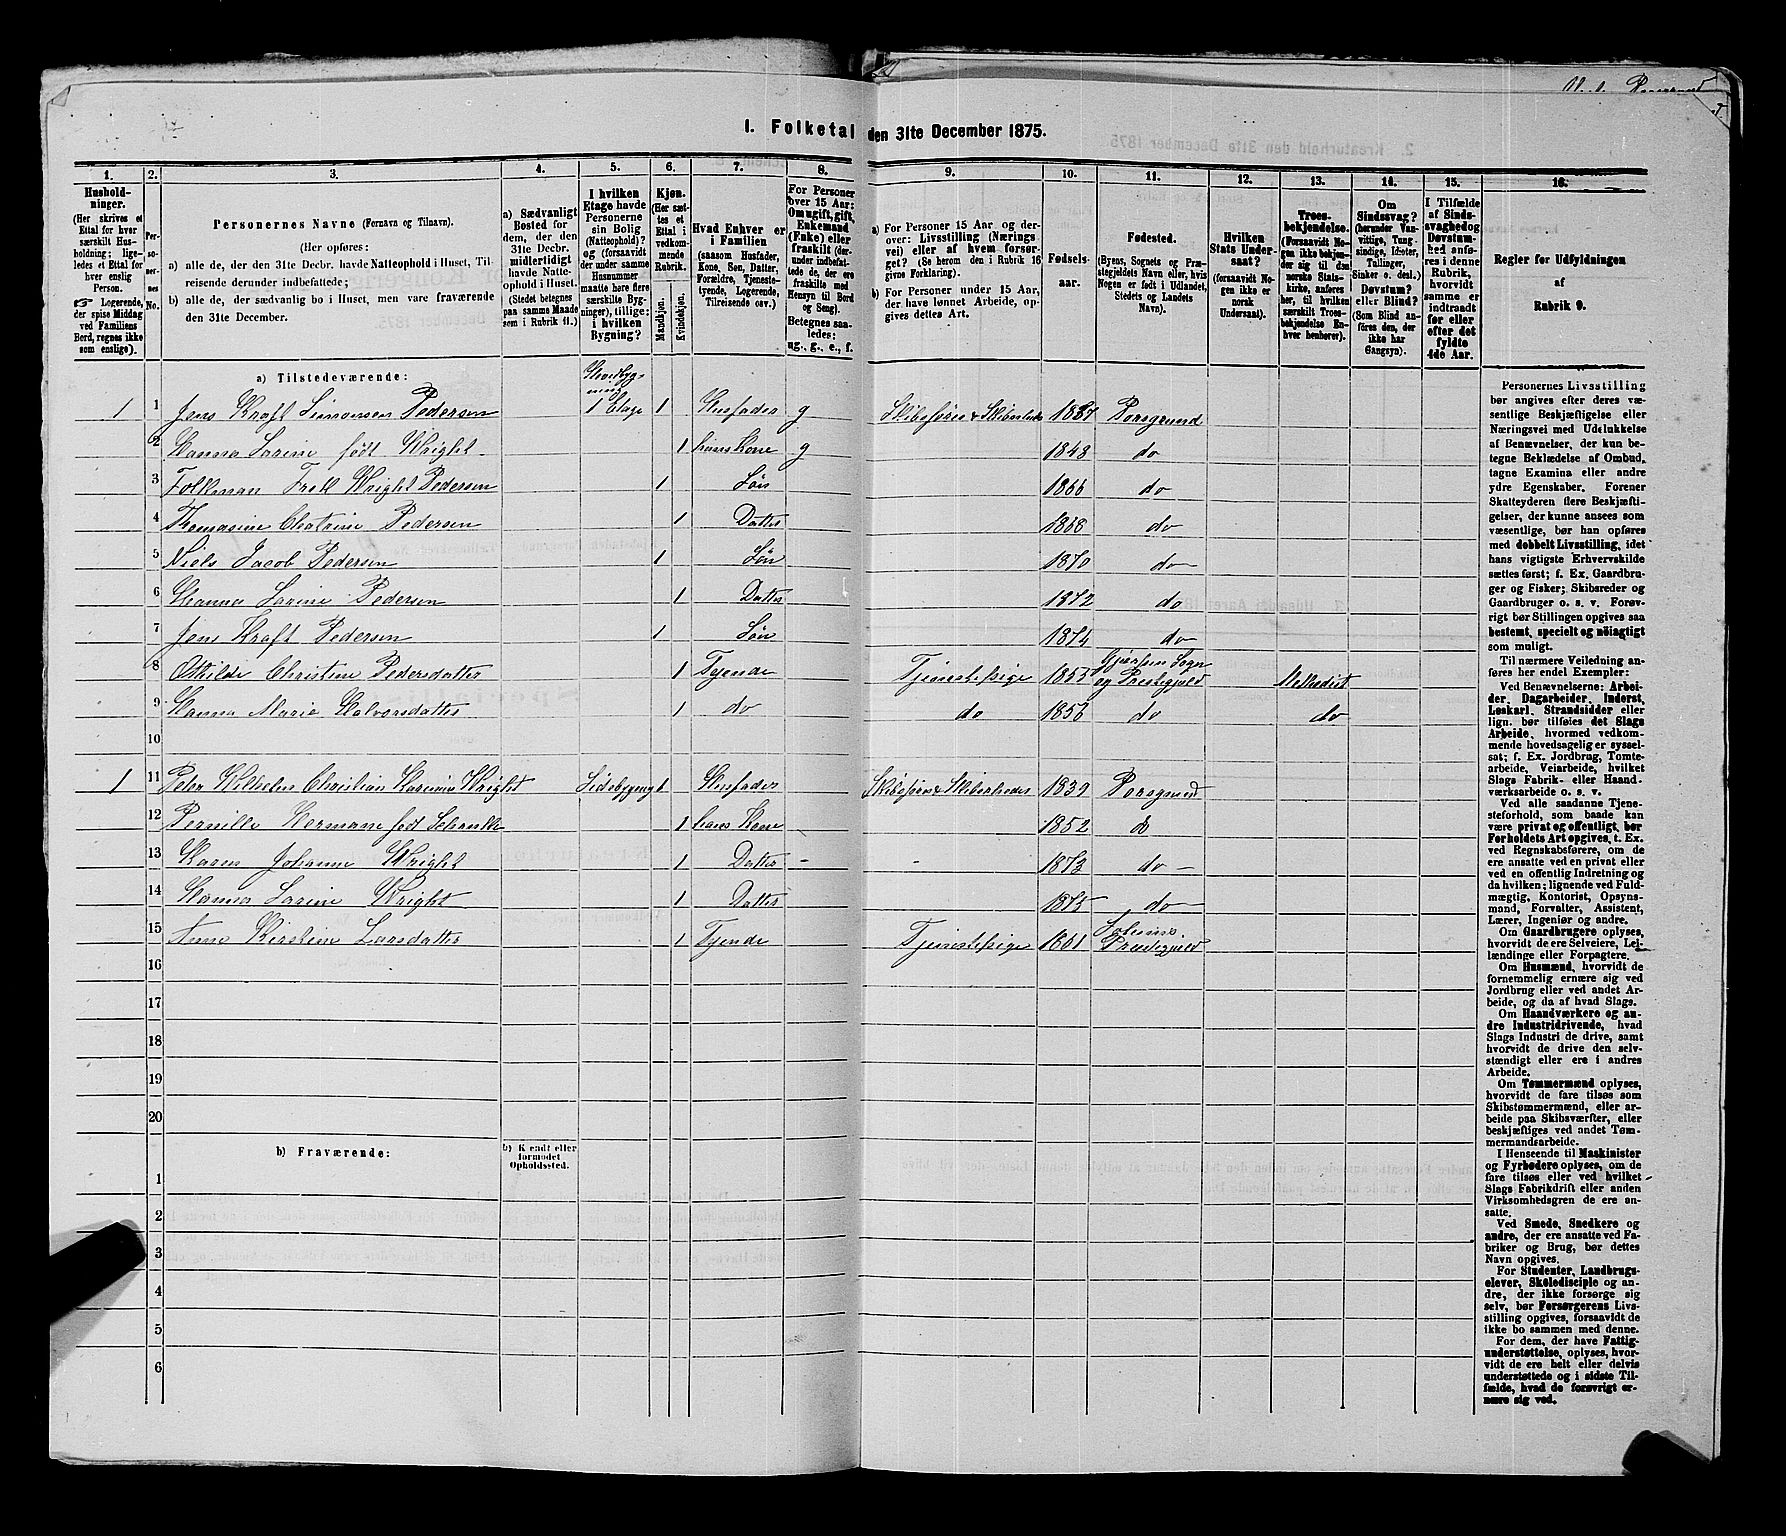 I. Folketal den 31te December 1875.
1. 2. 3. 4. 5. 6. 7. 8. 9. 10. 11. 12. 13. 14. 15. 16.
Hushold-
ninger.
(Her skrives et
Ettal for hver
særskilt Hus-
holdning; lige-
ledes et Ettal for
hver enslig
Person.
☞ Logerende,
der spise Middag
ved Familiens
Bord, regnes ikke
som enslige).
Per-
so-
ner-
nes
No.
Personernes Navne (Fornavn og Tilnavn).
(Her opføres:
a) alle de, der den 31te Decbr. havde Natteophold i Huset, Til-
reisende derunder indbefattede;
b) alle de, der sædvanlig bo i Huset, men vare fraværende
den 31te December.
a) Sædvanligt
Bosted for
dem, der den
31te Decbr.
midlertidigt
havde Natte-
ophold i Huset.
(Stedet betegnes
paa samme Maade
som i Rubrik 11.)
I hvilken
Etage havde
Personerne
sin Bolig
(Natteophold)?
og (forsaavidt
der under samme
Husnummer
maatte høre flere
særskilte Byg-
ninger), tillige:
i hvilken
Bygning?
Kjøn.
(Her sæt-
tes et
Ettal i
vedkom-
mende
Rubrik.
Mandkjøn.
Kvindekjøn.
Hvad Enhver er
i Familien
(saasom Husfader,
Kone, Søn, Datter,
Forældre, Tjeneste-
tyende, Logerende,
Tilreisende osv.)
For Personer
over 15 Aar:
Om ugift, gift,
Enkemand
(Enke) eller
fraskilt (der-
under indbefat-
tede de, der ere
fraskilte med
Hensyn til Bord
og Seng).
Betegnes saa-
ledes:
ug., g., e., f.
a) For Personer 15 Aar og der-
over: Livsstilling (Nærings
vei) eller af hvem forsør-
get? (Se herom den i Rubrik 16
givne Forklaring).
b) For Personer under 15 Aar,
der have lønnet Arbeide, op-
gives dettes Art.
Fødsels-
aar.
Fødested.
(Byens, Sognets og Præ-
stegjeldets Navn eller, hvis
Nogen er født i Udlandet,
Stedets og Landets
Navn).
Hvilken
Stats Under-
saat?
(forsaavidt No-
gen ikke er
norsk
Undersaat).
Troes-
bekjendelse.
(Forsaavidt No-
gen ikke bekjen-
der sig til den
norske Stats-
kirke, anføres
her, til hvilken
særskilt Troes-
bekjendelse En-
hver henhører).
Om
Sindssvag?
(herunder Van-
vittige, Tung-
sindige, Idioter,
Tullinger,
Sinker o. desl.)
Døvstum?
eller Blind?
(Som Blind an-
føres den, der
ikke har
Gangsyn).
I Tilfælde
af Sinds-
svaghed og
Døvstum-
hed anfø-
res i denne
Rubrik,
hvorvidt
samme er
indtraadt
før eller
efter det
fyldte
4de Aar.
Regler for Udfyldningen
af
Rubrik 9.
a) Tilstedeværende:
Hovedbyg-
ning
1 1 Jens Kraft Simonsen Pedersen 1 Etage 1 Husfader g Skibsfører & Skibsrheder 1837 Porsgrund
2 Hanna Larine født Wright 1 hans Kone g 1848 do
3 Folkman Fredk Wright Pedersen 1 Søn 1866 do
4 Thomasine Chatrine Pedersen 1 Datter 1868 do
5 Niels Jacob Pedersen 1 Søn 1870 do
6 Hanna Larine Pedersen 1 Datter 1872 do
7 Jens Kraft Pedersen 1 Søn 1874 do
8 Othilde Christine Pedersdatter 1 Tyende Tjenestepige 1855 Gjerpen Sogn og Prestegjeld Methodist
9 Hanna Marie Halvorsdatter 1 do do 1856 do do
10
1 11 Peter Wilhelm Christian Wright Sidebygning 1 Husfader Skibsfører & Skibsrheder 1839 Porsgrund
12 Pernille Hermane født 1 hans Kone 1852 do
13 Karen Johanne Wright 1 Datter - - 1873 do
14 Hanna Larine Wright 1 Datter 1875 do
15 Anne Kirstine Larsdatter 1 Tyende Tjenestepige 1861 Prestegjeld
16
17
18
19
20
b) Fraværende:
b) Kjendt eller
formodet
Opholdssted.
1
2
3
4
5
6
Personernes Livsstilling
bør angives efter deres væ-
sentlige Beskjæftigelse eller
Næringsvei med Udelukkelse
af Benævnelser, der kun be-
tegne Beklædelse af Ombud,
tagne Examina eller andre
ydre Egenskaber. Forener
Skatteyderen flere Beskjæfti-
gelser, der kunne ansees som
væsentlige, bør han opføres
med dobbelt Livsstilling, idet
hans vigtigste Erhvervskilde
sættes først; f. Ex. Gaardbru-
ger og Fisker; Skibsreder og
Gaardbruger o. s. v. Forøv-
rigt bør Stillingen opgives saa
bestemt, specielt og nøiagtigt
som muligt.
Til nærmere Veiledning an-
føres her endel Exempler:
Ved Benævnelserne: Arbei-
der, Dagarbeider, Inderst,
Løskarl, Strandsidder eller
lign. bør tilføies det Slags
Arbeide, hvormed vedkom-
mende hovedsagelig er syssel-
sat; f. Ex. Jordbrug, Tomte-
arbeide, Veiarbeide, hvilket
Slags Fabrik- eller Haand-
værksarbeide o. s. v.
Ved alle saadanne Tjene-
steforhold, som baade kan
være privat og offentligt, bør
Forholdets Art opgives, t. Ex.
ved Regnskabsførere, om de
ere ansatte ved en privat eller
ved en offentlig Indretning og
da hvilken; lignende ved Fuld-
mægtig, Kontorist, Opsyns-
mand, Forvalter, Assistent,
Lærer, Ingeniør og andre.
Om Gaardbrugere oplyses,
hvorvidt de ere Selveiere, Lei-
lændinge eller Forpagtere.
Om Husmænd, hvorvidt de
fornemmelig ernære sig ved
Jordbrug eller ved andet Ar-
beide, og da af hvad Slags.
Om Haandværkere og an-
dre Industridrivende, hvad
Slags Industri de drive, samt
hvorvidt de drive den selv-
stændigt eller ere i andres
Arbeide.
Om Tømmermænd oplyses,
hvorvidt de fare tilsøs som
Skibstømmermænd, eller ar-
beide paa Skibsværfter, eller
beskjæftiges ved andet Tøm-
mermandsarbeide.
I Henseende til Maskinister
og Fyrbødere oplyses, om de
fare tilsøs eller ved hvilket
Slags Fabrikdrift eller anden
Virksomhedsgren de ere an-
satte.
Ved Smede, Snedkere og
andre, der ere ansatte ved Fa-
briker og Brug, bør dettes
Navn opgives.
For Studenter, Landbrugs-
elever, Skoledisciple og an-
dre, der ikke forsørge sig
selv, bør Forsørgerens Livs-
stilling opgives, forsaavidt de
ikke bo sammen med denne.
For dem, der have Fattig-
understøttelse, oplyses, hvor-
vidt de ere helt eller delvis
understøttede og i sidste Til-
fælde, hvad de forøvrigt er-
nære sig ved.